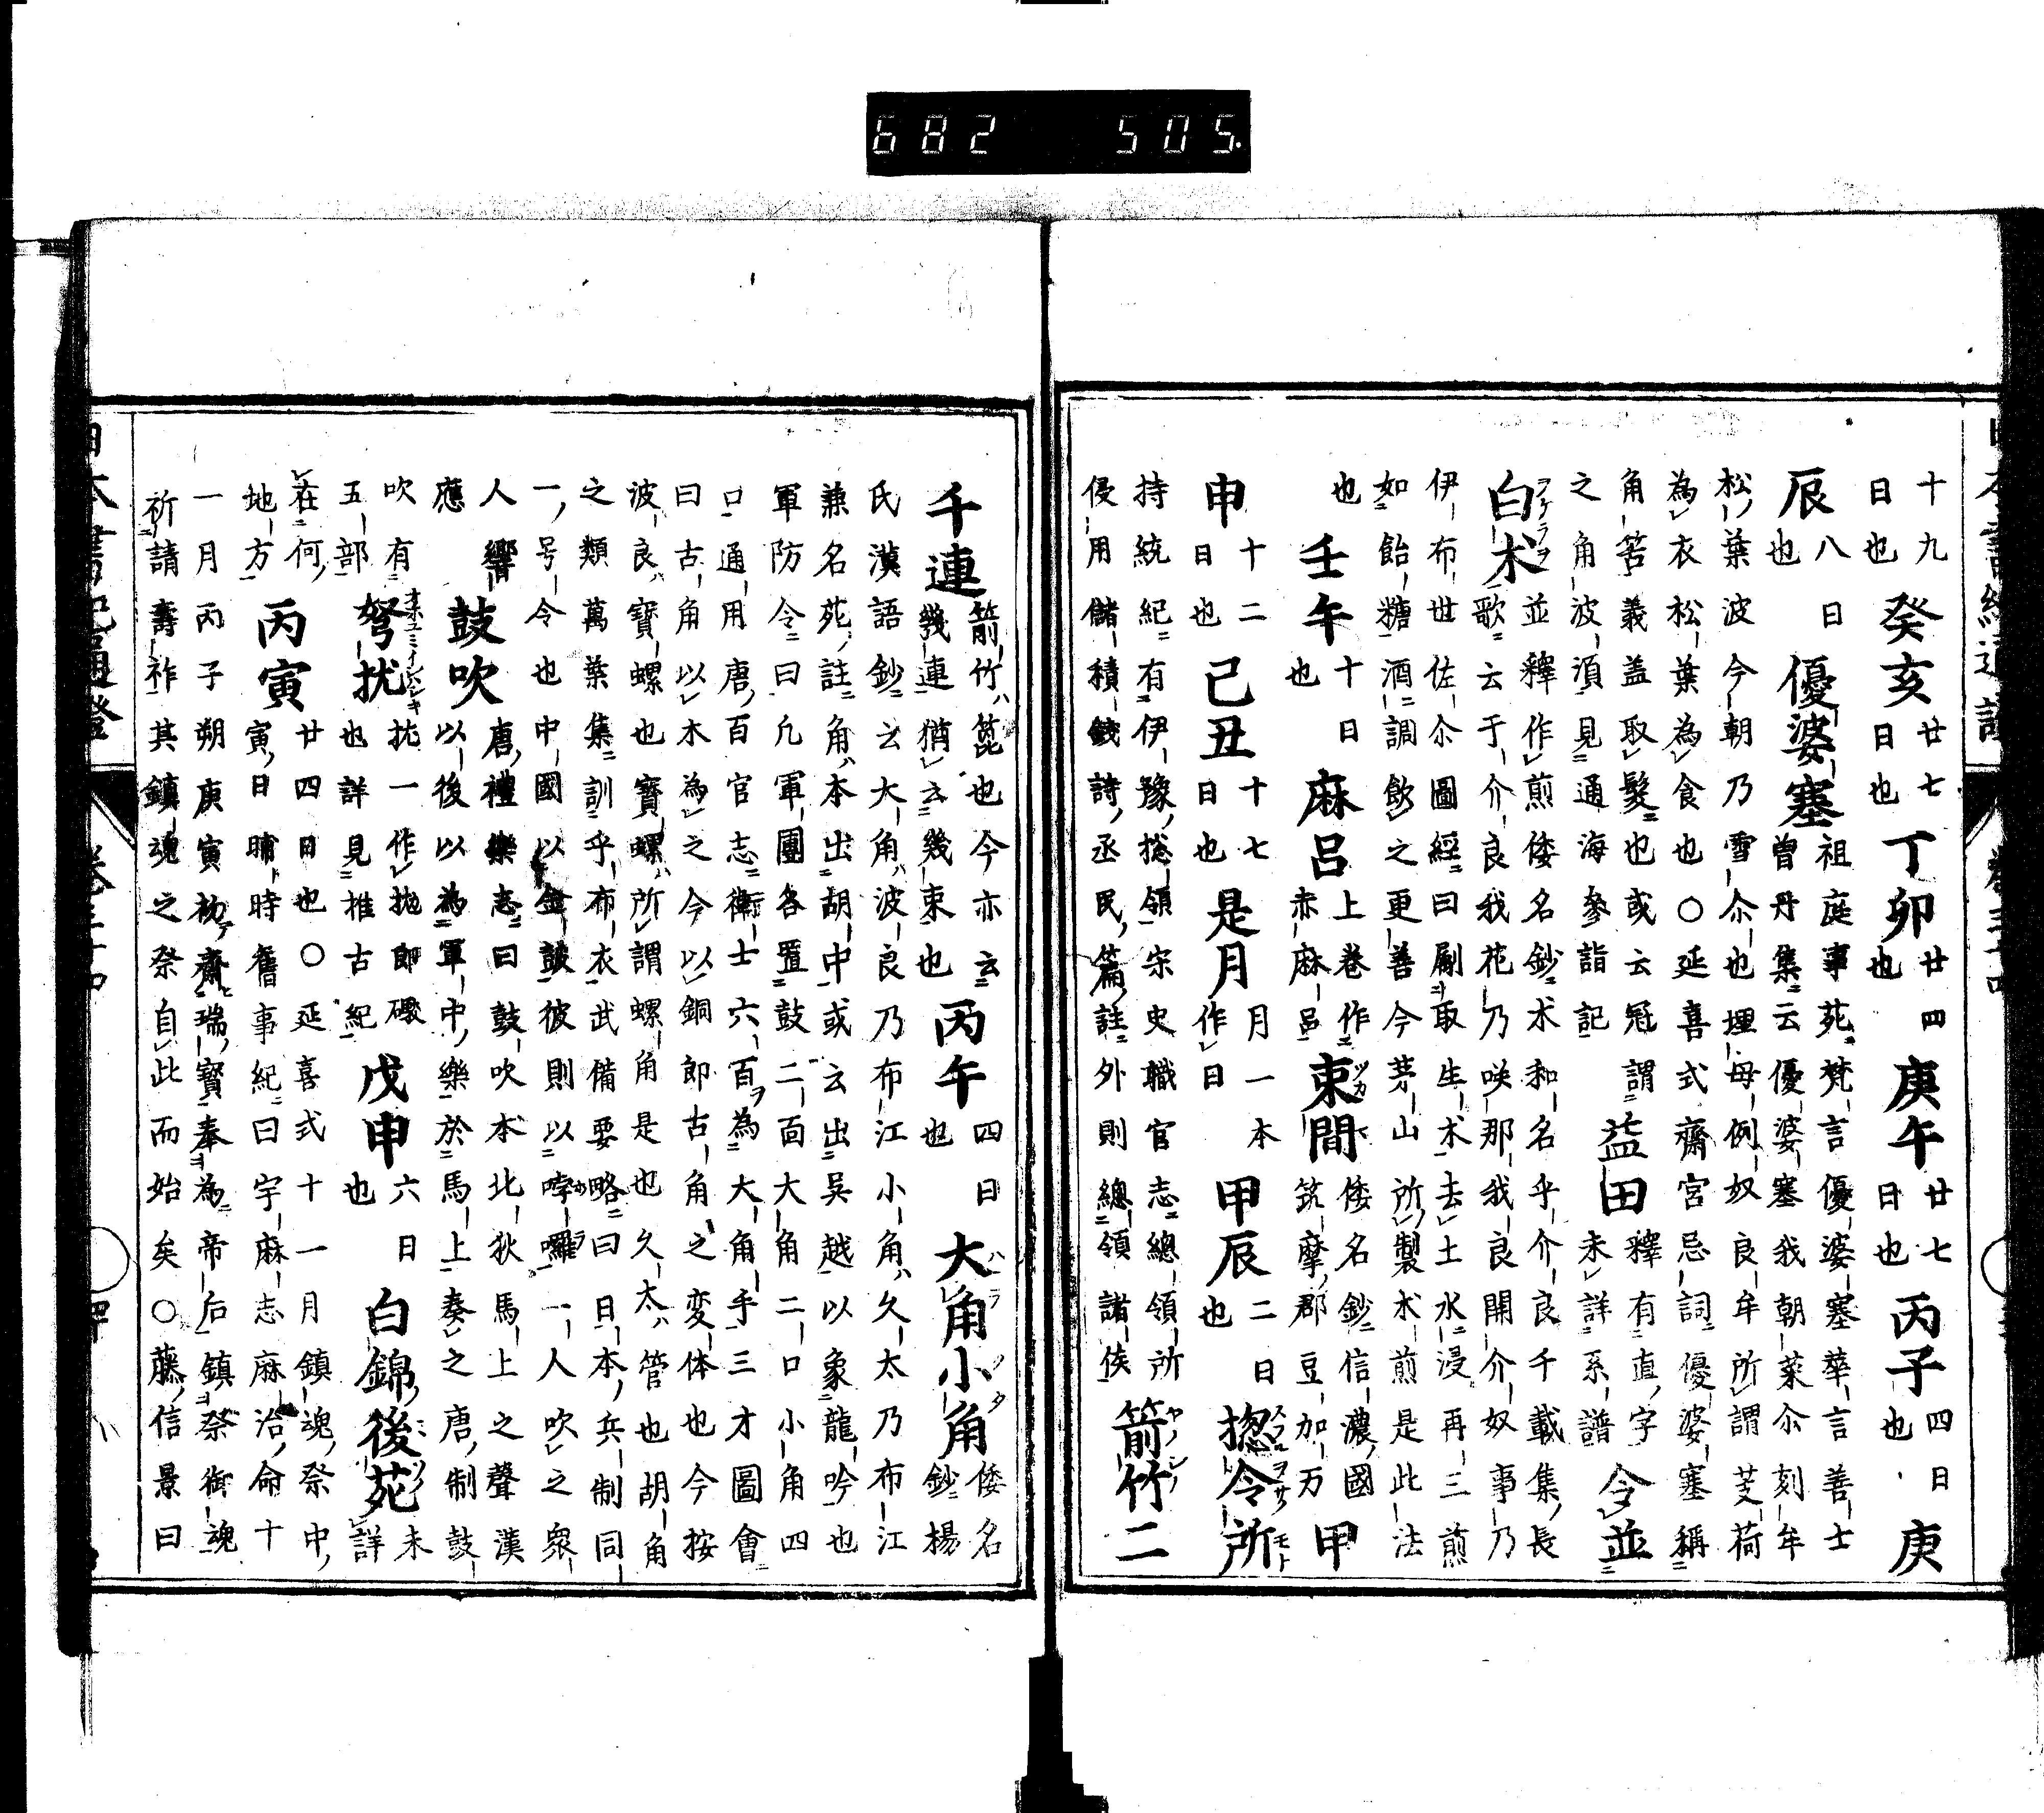 十九日也 癸亥 廿七日也 丁卯 廿四也 庚午 廿七日也 丙子 四日也 庚
辰 八日也 優婆塞 祖庭事苑梵言優婆塞華言善士曾丹集云優婆塞我朝菜尒刻牟
松葉波今朝乃雪尒也埋母例奴良牟所謂芰荷
為衣松葉為食也○延喜式齋宮忌詞優婆塞稱
角筈義盖取髮也或云冠謂之角波須見通海參詣記 益田 釋有直字未詳系譜 令並
白朮 並釋作煎倭名鈔朮和名乎介良千載集長歌云于介良我花乃咲那我良開介奴事乃
伊布世佐尒圖經曰劚取生朮去土水浸再三煎
如飴糖酒調飲之更善今茅山所製朮煎是此法
也 壬午 十日也 麻呂 上卷作赤麻呂 束間 倭名鈔信濃國筑摩郡豆加万 甲
申 十二日也 己丑 十七日也 是月 月一本作日 甲辰 二日也 揔令所
持統紀有伊豫揔領宋史職官志總領所侵用儲積錢詩丞民篇註外則總領諸侯 箭竹二
千連 箭竹篦也今亦云幾連猶云幾束也 丙午 四日也 大角小角 倭名鈔楊
氏漢語鈔云大角波良乃布江小角久太乃布江
兼名苑註角本出胡中或云出出吳越以象龍吟也
軍防令曰凡軍團各置鼓二面大角二口小角四
口通用唐百官志衛士六百為大角手三才圖會
曰古角以木為之今以銅即古角之変体也今按
波良寶螺也寶螺所謂螺角是也久太管也胡角
之類萬葉集訓乎布衣武備要略曰日本兵制同
一号令也中國以金鼓彼則以哱囉一人吹之衆
人響應 鼓吹 唐禮樂志曰鼓吹本北狄馬上之聲漢以後以為軍中樂於馬上奏之唐制鼓
吹有五部 弩扰 扰一作抛即礮也詳見推古紀 戊申 六日也 白錦後苑 未詳
在何地方 丙寅 廿四日也○延喜式十一月鎮魂祭中寅日晡時舊事紀曰宇麻志麻治命十
一月丙子朔庚寅初齋瑞寶奉為帝后鎮祭御魂
祈請壽祚其鎮魂之祭自此而始矣○藤信景曰
日本書紀通證 卷三十四
682 505.